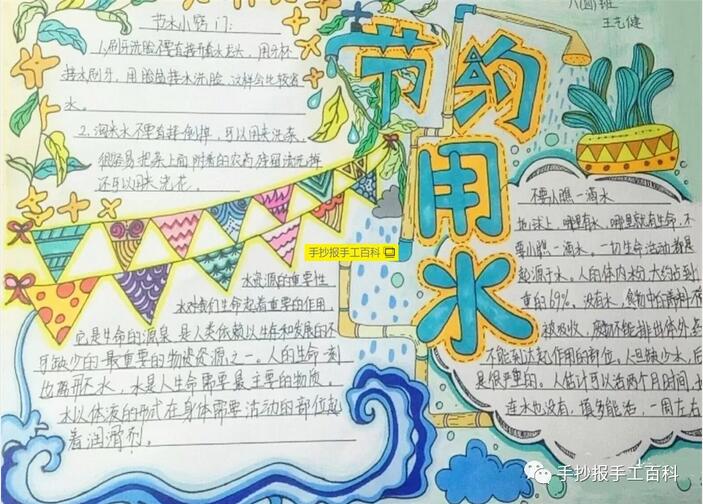 节水小窍门:
1、刷牙洗脸不要直接开着水龙头,用牙杯
接水刷牙,用脸盆接水洗脸,这样会比较省
水。
2、淘米水不要直接倒掉,可以用来洗菜,
很容易把菜上面附着的农药残留清洗掉
还可以用来浇花。
节约
用
水
八(四)班
王艺健
不要小瞧一滴水
地球上,哪里有水,哪里就有生命,不
要小瞧一滴水。一切生命活动都是
起源于水。人的体内水分大约占到
重的69%。没有水,食物中的养料不
被吸收,废物不能排出体外,
不能到达起作用的部位,人旦缺少水,后
是很严重的。人估计可以活两个月时间,
连水也没有,填多能活,一周左右
手抄报手工百科
水资源的重要性
水对我们生命起着重要的作用,
它是生命的源泉,是人类依赖以生存和发展的不
可缺少的最重要的物资资源之一。人的生命一刻
也离不开水,水是人生命需要最主要的物质。
水以体液的形式在身体需要活动的部位起
着润滑剂。
手抄报手工百科